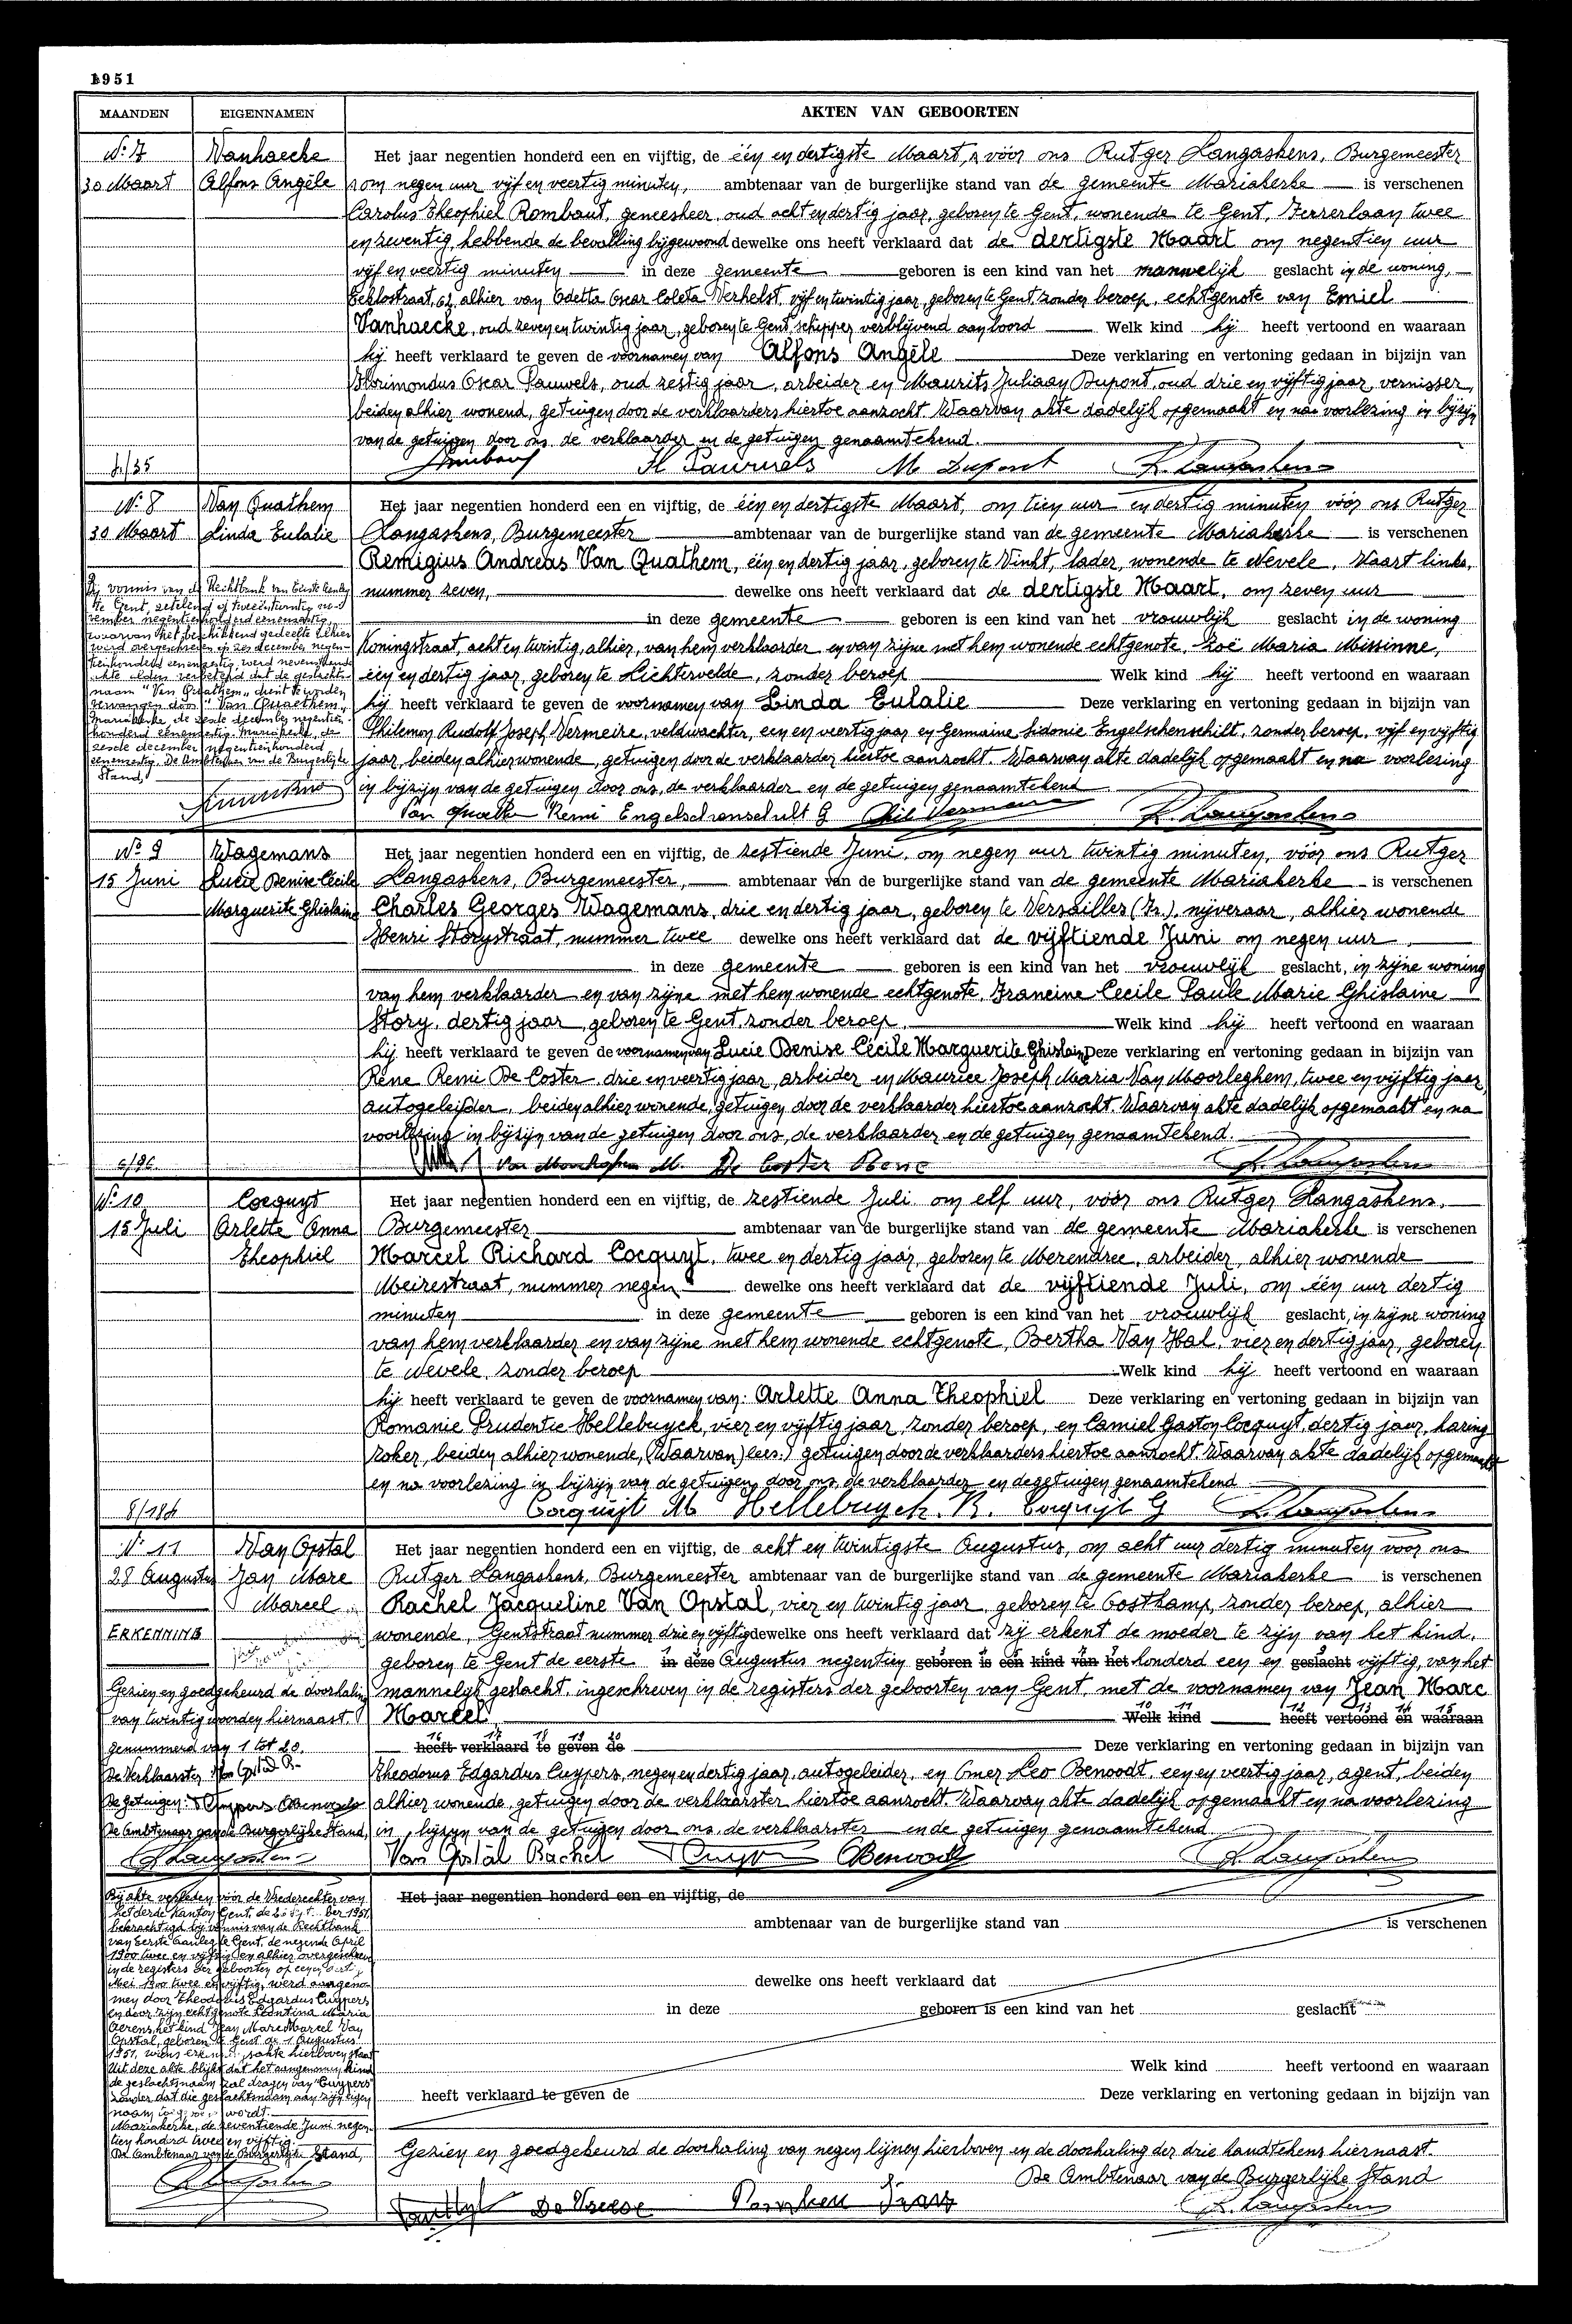 1951
MAANDEN EIGENNAMEN AKTEN VAN GEBOORTEN
Nr 7
30 Maart
Vanhaecke
Alfons Angèle
Het jaar negentien honderd een en vijftig, de één en dertigste Maart, vóór ons Rutger Langaskens, Burgemeester
om negen uur vijf en veertig minuten, ambtenaar van de burgerlijke stand van de gemeente Mariakerke is verschenen
Carolus Theophiel Rombaut, geneesheer, oud acht en dertig jaar, geboren te Gent, wonende te Gent, Ferrerlaan twee
en zeventig, hebbende de bevalling bijgewoond dewelke ons heeft verklaard dat de dertigste Maart om negentien uur
vijf en veertig minuten in deze gemeente geboren is een kind van het mannelijk geslacht in de woning,
Eeklostraat, alhier van Odetta Oscar Coleta Verhelst, vijf en twintig jaar, geboren te Gent, zonder beroep, echtgenote van Emiel
Vanhaecke, oud zeven en twintig jaar, geboren te Gent, schipper verblijvend aan boord Welk kind hij heeft vertoond en waaraan
hij heeft verklaard te geven de voornamen van Alfons Angèle Deze verklaring en vertoning gedaan in bijzijn van
Florimondus Oscar Pauwels, oud zestig jaar, arbeider en Maurits Juliaan Dupont, oud drie en vijftig jaar, vernisser,
beiden alhier wonend, getuigen door de verklaarders hiertoe aanzocht. Waarvan akte dadelijk opgemaakt en na voorlezing in bijzijn
van de getuigen door ons de verklaarder en de getuigen genaamtekend.
Pauwels M Dupont R. Langaskens
Nr 8
30 Maart
Van Quathem
Linda Eulalie
Het jaar negentien honderd een en vijftig, de één en dertigste Maart, om tien uur en dertig minuten vóór ons Rutger
Langaskens, Burgemeester ambtenaar van de burgerlijke stand van de gemeente Mariakerke is verschenen
Remigius Andreas Van Quathem, één en dertig jaar, geboren te Vinkt, lader, wonende te Nevele, Vaart links,
nummer zeven, dewelke ons heeft verklaard dat de dertigste Maart, om zeven uur
in deze gemeente geboren is een kind van het vrouwelijk geslacht in de woning
Koningstraat, acht en twintig, alhier, van hem verklaarder en van zijne met hem wonende echtgenote, Zoë Maria Missinne,
één en dertig jaar, geboren te Lichtervelde, zonder beroep Welk kind hij heeft vertoond en waaraan
hij heeft verklaard te geven de voornamen van Linda Eulalie Deze verklaring en vertoning gedaan in bijzijn van
Philemon Rudolf Joseph Vermeire, veldwachter, een en veertig jaar en Germaine Sidonie Engelschenschilt, zonder beroep, vijf en vijftig
jaar, beiden alhier wonende, getuigen door de verklaarder hiertoe aanzocht. Waarvan akte dadelijk opgemaakt en na voorlezing
in bijzijn van de getuigen door ons, de verklaarder en de getuigen genaamtekend
Bij vonnis van de Rechtbank van Eerste Aanleg
te Gent, zetelend op tweeëntwintig no-
vember negentienhonderd eenenzestig,
waarvan het beschikkend gedeelte alhier
werd overgeschreven op zes december negen-
tienhonderd eenenzestig, werd nevenstaande
akte verbeterd dat de geslachts-
naam "Van Quathem" dient te worden
vervangen door "Van Quaethem".
Mariakerke, de zesde december negentien-
honderd eenenzestig. Mariakerke, de
zesde december negentienhonderd
eenenzestig. De Ambtenaar van de Burgerlijke
Stand,
Remi Engelschenschilt G R. Langaskens
Nr 9
15 Juni
Wagemans
Lucie Denise Cécile
Marguerite Ghislaine
Het jaar negentien honderd een en vijftig, de zestiende Juni, om negen uur twintig minuten, vóór ons Rutger
Langaskens, Burgemeester, ambtenaar van de burgerlijke stand van de gemeente Mariakerke is verschenen
Charles Georges Wagemans, drie en dertig jaar, geboren te Versailles (Fr.), nijveraar, alhier wonende
Henri Storystraat, nummer twee dewelke ons heeft verklaard dat de vijftiende Juni om negen uur
in deze gemeente geboren is een kind van het vrouwelijk geslacht, in zijne woning
van hem verklaarder en van zijne met hem wonende echtgenote, Francine Cecile Paule Marie Ghislaine
Story, dertig jaar, geboren te Gent, zonder beroep. Welk kind hij heeft vertoond en waaraan
hij heeft verklaard te geven de voornamen van Lucie Denise Cécile Marguerite Ghislaine Deze verklaring en vertoning gedaan in bijzijn van
René Remi De Coster, drie en veertig jaar, arbeider en Maurice Joseph Maria Van Moorleghem, twee en vijftig jaar,
autogeleider, beiden alhier wonende, getuigen door de verklaarder hiertoe aanzocht. Waarvan akte dadelijk opgemaakt en na
voorlezing in bijzijn van de getuigen door ons, de verklaarder en de getuigen genaamtekend.
M. De Coster Rene R. Langaskens
Nr 10
15 Juli
Cocquyt
Arlette Anna
Theophiel
Het jaar negentien honderd een en vijftig, de zestiende Juli om elf uur, vóór ons Rutger Langaskens,
Burgemeester ambtenaar van de burgerlijke stand van de gemeente Mariakerke is verschenen
Marcel Richard Cocquyt, twee en dertig jaar, geboren te Merendree, arbeider, alhier wonende
Meirestraat, nummer negen dewelke ons heeft verklaard dat de vijftiende Juli, om één uur dertig
minuten in deze gemeente geboren is een kind van het vrouwelijk geslacht, in zijne woning
van hem verklaarder en van zijne met hem wonende echtgenote, Bertha Van Hal, vier en dertig jaar, geboren
te Nevele, zonder beroep Welk kind hij heeft vertoond en waaraan
hij heeft verklaard te geven de voornamen van: Arlette Anna Theophiel Deze verklaring en vertoning gedaan in bijzijn van
Romanie Prudentie Hellebuyck, vier en vijftig jaar, zonder beroep, en Camiel Gaston Cocquyt, dertig jaar, haring
roker, beiden alhier wonende, (Waarvan) lees:) getuigen door de verklaarders hiertoe aanzocht. Waarvan akte dadelijk opgemaakt
en na voorlezing in bijzijn van de getuigen, door ons, de verklaarder en de getuigen genaamtekend
Cocquijt M Hellebuyck. R. Cocquijt G R. Langaskens
Nr 11
28 Augustus
ERKENNING
Van Opstal
Jan Marc
Marcel
Het jaar negentien honderd een en vijftig, de acht en twintigste Augustus, om acht uur dertig minuten voor ons
Rutger Langaskens, Burgemeester ambtenaar van de burgerlijke stand van de gemeente Mariakerke is verschenen
Rachel Jacqueline Van Opstal, vier en twintig jaar, geboren te Oostkamp, zonder beroep, alhier
wonende, Gentstraat nummer drie en vijftig dewelke ons heeft verklaard dat zij erkent de moeder te zijn van het kind,
geboren te Gent de eerste in deze Augustus negentien geboren is een kind van het honderd een en geslacht vijftig, van het
mannelijk geslacht, ingeschreven in de registers der geboorten van Gent, met de voornamen van Jean Marc
Marcel Welk kind heeft vertoond en waaraan
heeft verklaard te geven de Deze verklaring en vertoning gedaan in bijzijn van
Theodorus Edgardus Cuypers, negen en dertig jaar, autogeleider, en Omer Leo Benoodt, een en veertig jaar, agent, beiden
alhier wonende, getuigen door de verklaarster hiertoe aanzocht. Waarvan akte dadelijk opgemaakt en na voorlezing
in bijzijn van de getuigen door ons, de verklaarster en de getuigen genaamtekend
Gezien en goedgekeurd de doorhaling
van twintig woorden hiernaast,
genummerd van 1 tot 20.
De Verklaarster
De getuigen:
De Ambtenaar van de Burgerlijke Stand,
Van Opstal Rachel Benoodt R. Langaskens
Het jaar negentien honderd een en vijftig, de
ambtenaar van de burgerlijke stand van is verschenen
dewelke ons heeft verklaard dat
in deze geboren is een kind van het geslacht
Welk kind heeft vertoond en waaraan
heeft verklaard te geven de Deze verklaring en vertoning gedaan in bijzijn van
Bij akte verleden vóór de Vrederechter van
het derde Kanton Gent, de 1951,
bekrachtigd bij vonnis van de Rechtbank
van Eerste Aanleg te Gent, de negende April
1900 twee en vijftig en alhier overgeschreven
in de registers der geboorten op
Mei 1900 twee en vijftig, werd aangeno-
men door Theodorus Edgardus Cuypers
en door zijn echtgenote Leontina Maria
Aerens, het kind Jean Marc Marcel Van
Opstal, geboren te Gent de 1 Augustus
1951, wiens akte hierboven staat
Uit deze akte blijkt dat het aangenomen kind
de geslachtsnaam zal dragen van "Cuypers"
zonder dat die geslachtsnaam aan zijn eigen
naam wordt.
Mariakerke, de zeventiende Juni negen-
tien honderd twee en vijftig.
De Ambtenaar van de Burgerlijke Stand,
Gezien en goedgekeurd de doorhaling van negen lijnen hierboven en de doorhaling der drie handtekens hiernaast.
De Ambtenaar van de Burgerlijke Stand
R. Langaskens